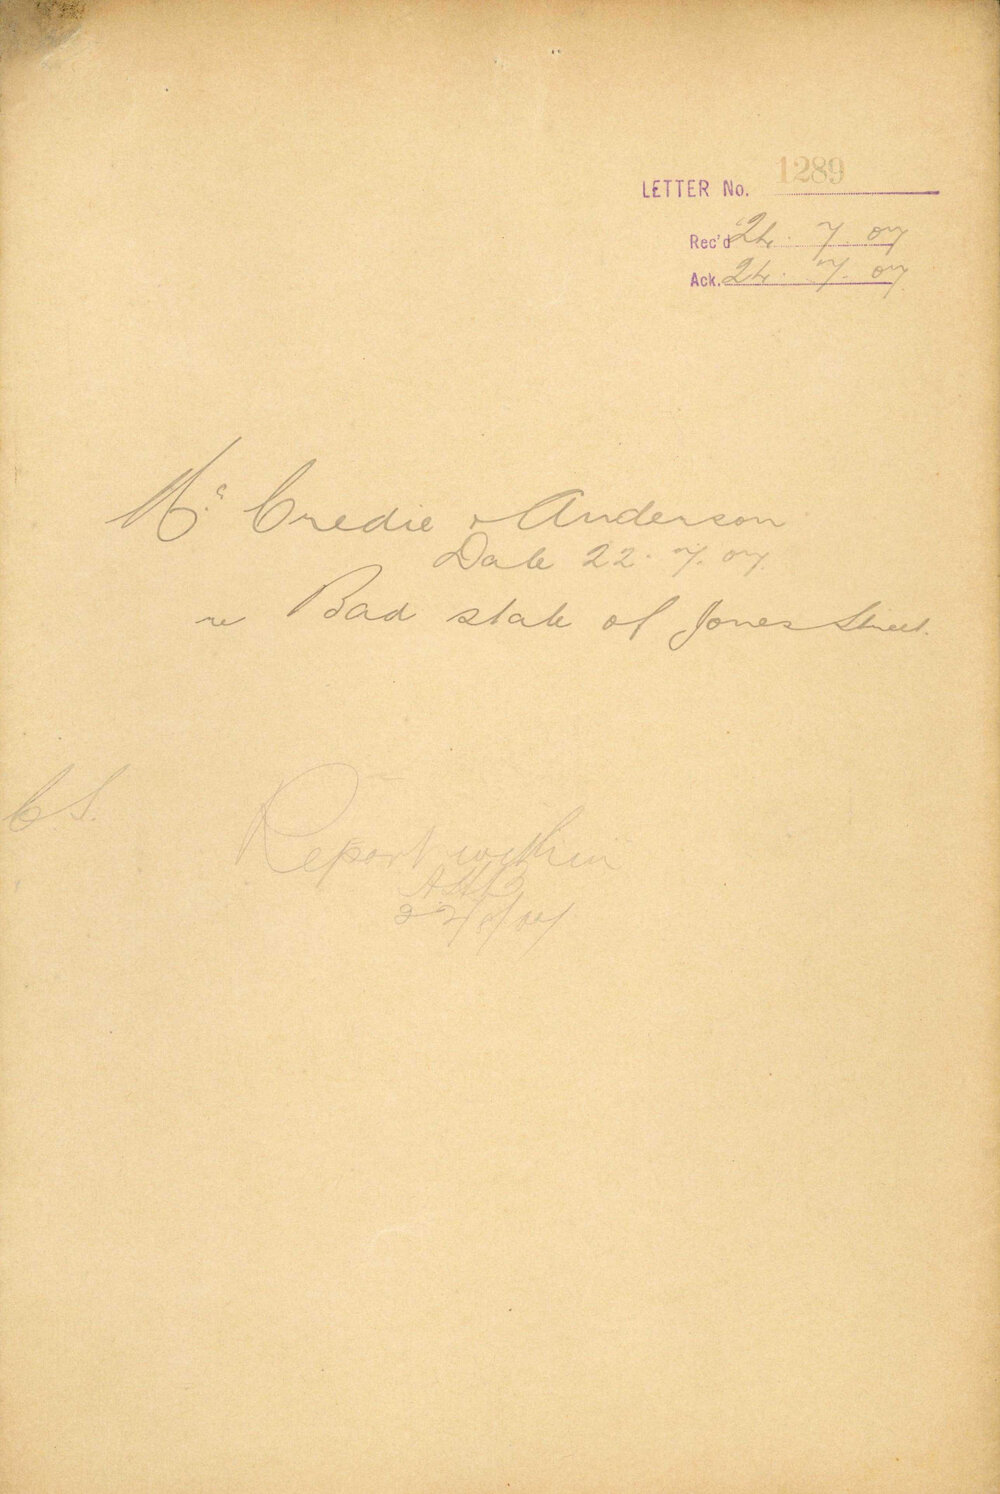 LETTER No. 1289
Rec'd 24. 7. 07
Ack. 24. 7. 07
Mc Credie & Anderson
Date 22. 7. 07.
re Bad state of Jones Street.
CS.
Report within